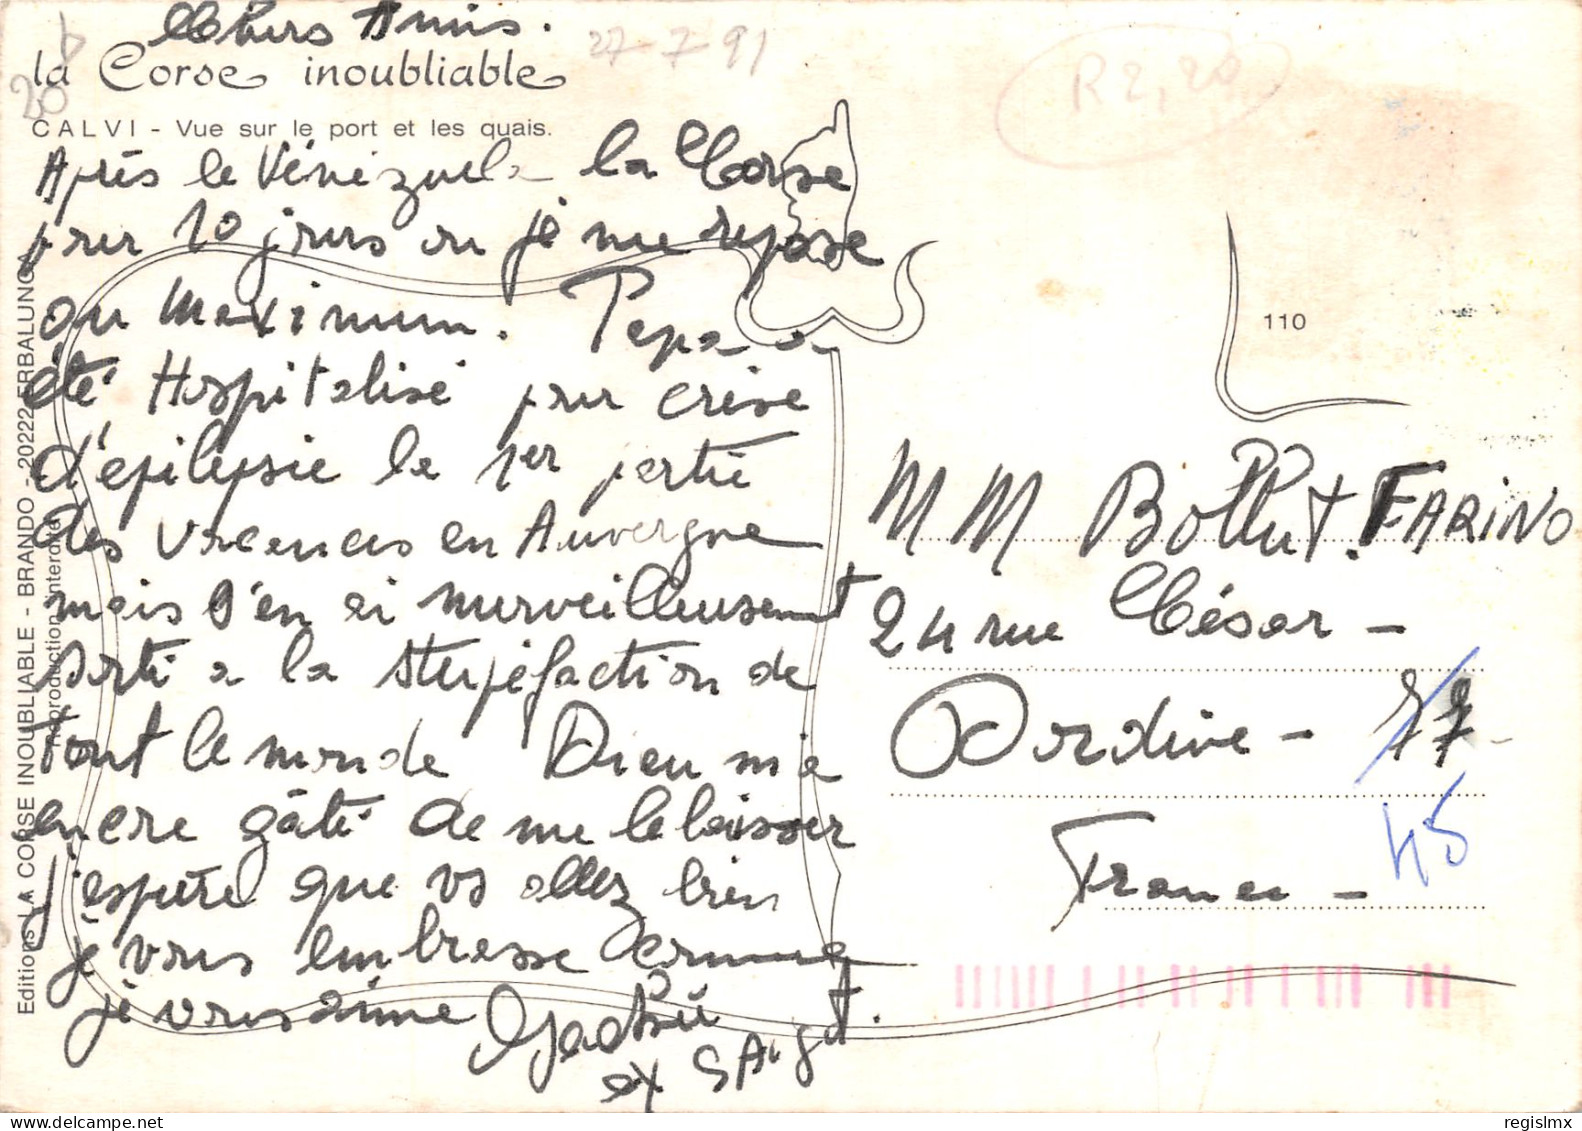 Chers Amis.
27-7-91
la Corse inoubliable
20
R 2,20
CALVI - Vue sur le port et les quais.
Après le Vénézuela la Corse
pour 10 jours ou je me repose
au maximum. Papa a
été Hospitalisé pour crise
d'épilepsie le 1er partie
des vacances en Auvergne
mais s'en ai merveilleusement
sorti a la stupéfaction de
tout le monde Dieu m'a
encre gâté de me le laisser
j'espère que vs allez bien
je vous embrasse comme
je vous aime
ex
Editions LA CORSE INOUBLIABLE - BRANDO - 20222 ERBALUNGA
Reproduction interdite
110
M M Bollut. FARINO
24 rue César -
Dordive - 77
45
France -
regislmx
delcampe.net